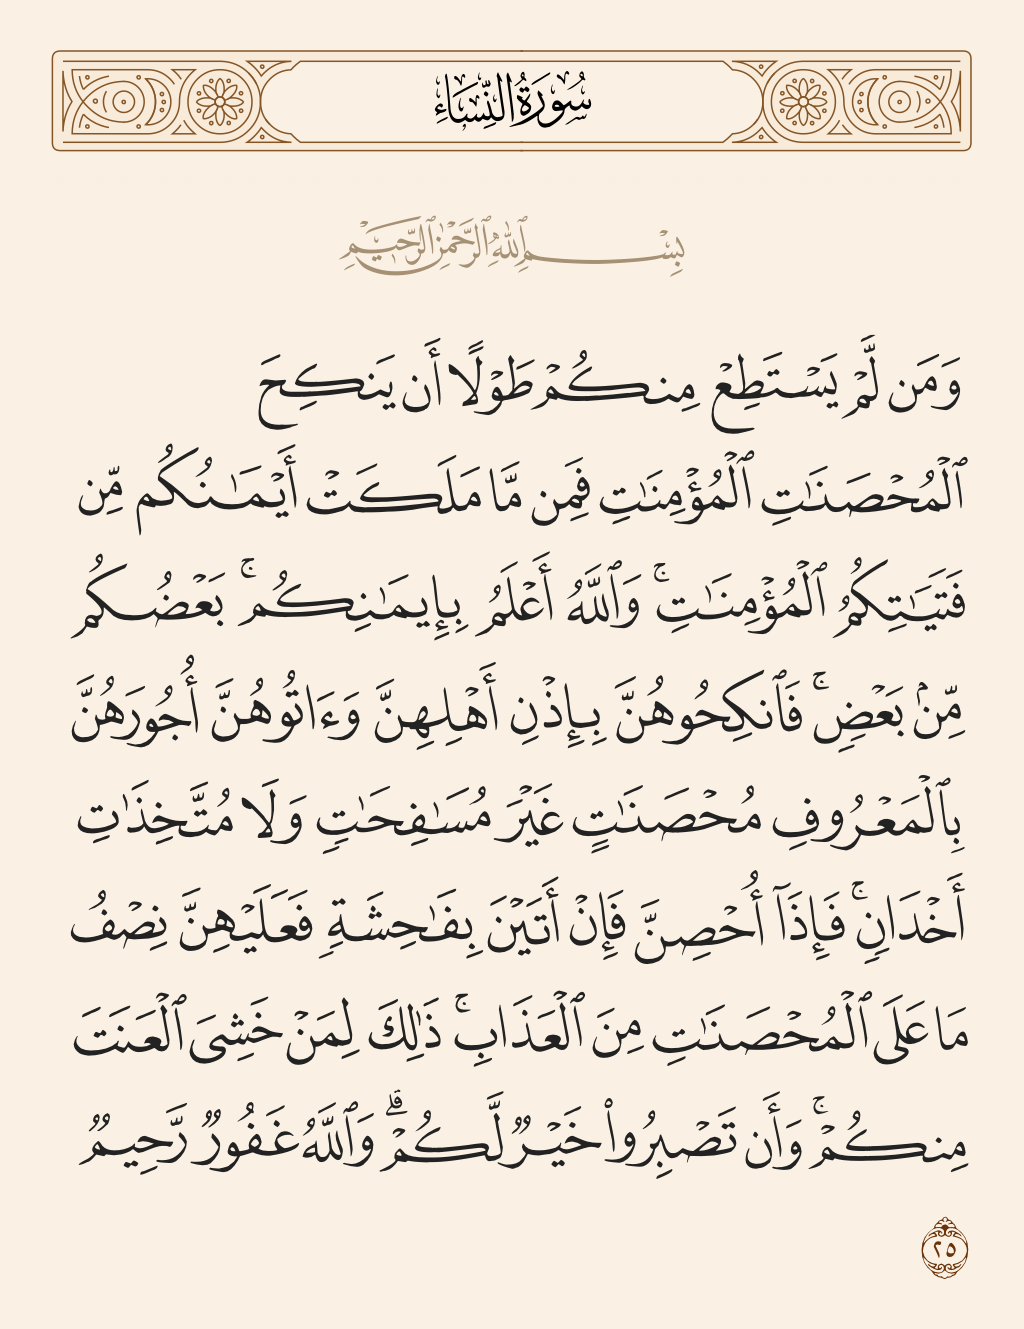 سُورَةُ النِّسَاءِ
بِسْمِ ٱللَّهِ ٱلرَّحْمَٰنِ ٱلرَّحِيمِ
وَمَن لَّمْ يَسْتَطِعْ مِنكُمْ طَوْلًا أَن يَنكِحَ
ٱلْمُحْصَنَٰتِ ٱلْمُؤْمِنَٰتِ فَمِن مَّا مَلَكَتْ أَيْمَٰنُكُم مِّن
فَتَيَٰتِكُمُ ٱلْمُؤْمِنَٰتِ ۚ وَٱللَّهُ أَعْلَمُ بِإِيمَٰنِكُم ۚ بَعْضُكُم
مِّنۢ بَعْضٍ ۚ فَٱنكِحُوهُنَّ بِإِذْنِ أَهْلِهِنَّ وَءَاتُوهُنَّ أُجُورَهُنَّ
بِٱلْمَعْرُوفِ مُحْصَنَٰتٍ غَيْرَ مُسَٰفِحَٰتٍ وَلَا مُتَّخِذَٰتِ
أَخْدَانٍ ۚ فَإِذَآ أُحْصِنَّ فَإِنْ أَتَيْنَ بِفَٰحِشَةٍ فَعَلَيْهِنَّ نِصْفُ
مَا عَلَى ٱلْمُحْصَنَٰتِ مِنَ ٱلْعَذَابِ ۚ ذَٰلِكَ لِمَنْ خَشِىَ ٱلْعَنَتَ
مِنكُمْ ۚ وَأَن تَصْبِرُوا۟ خَيْرٌ لَّكُمْ ۗ وَٱللَّهُ غَفُورٌ رَّحِيمٌ
٢٥